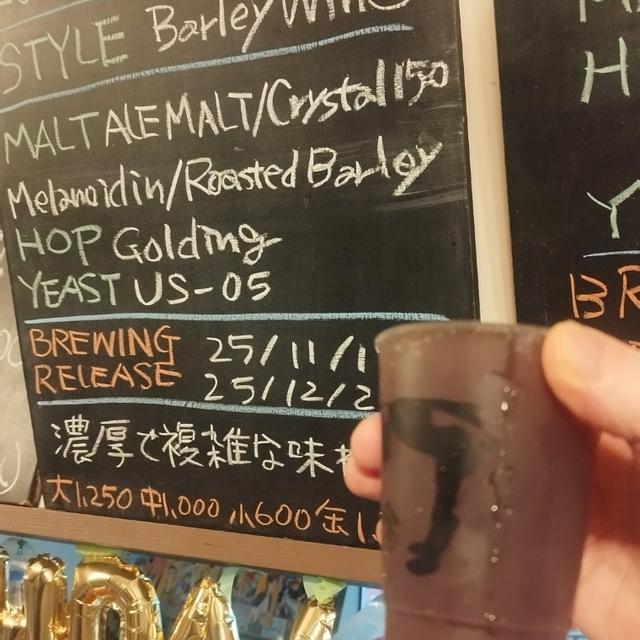 STYLE Barley Wine
MALT ALE MALT/Crystal 150
Melanoidin/Roasted Barley
HOP Golding
YEAST US-05
BREWING 25/11/1
RELEASE 25/12/2
濃厚で複雑な味
大1,250 中1,000 小600 缶1,
H
Y
BR